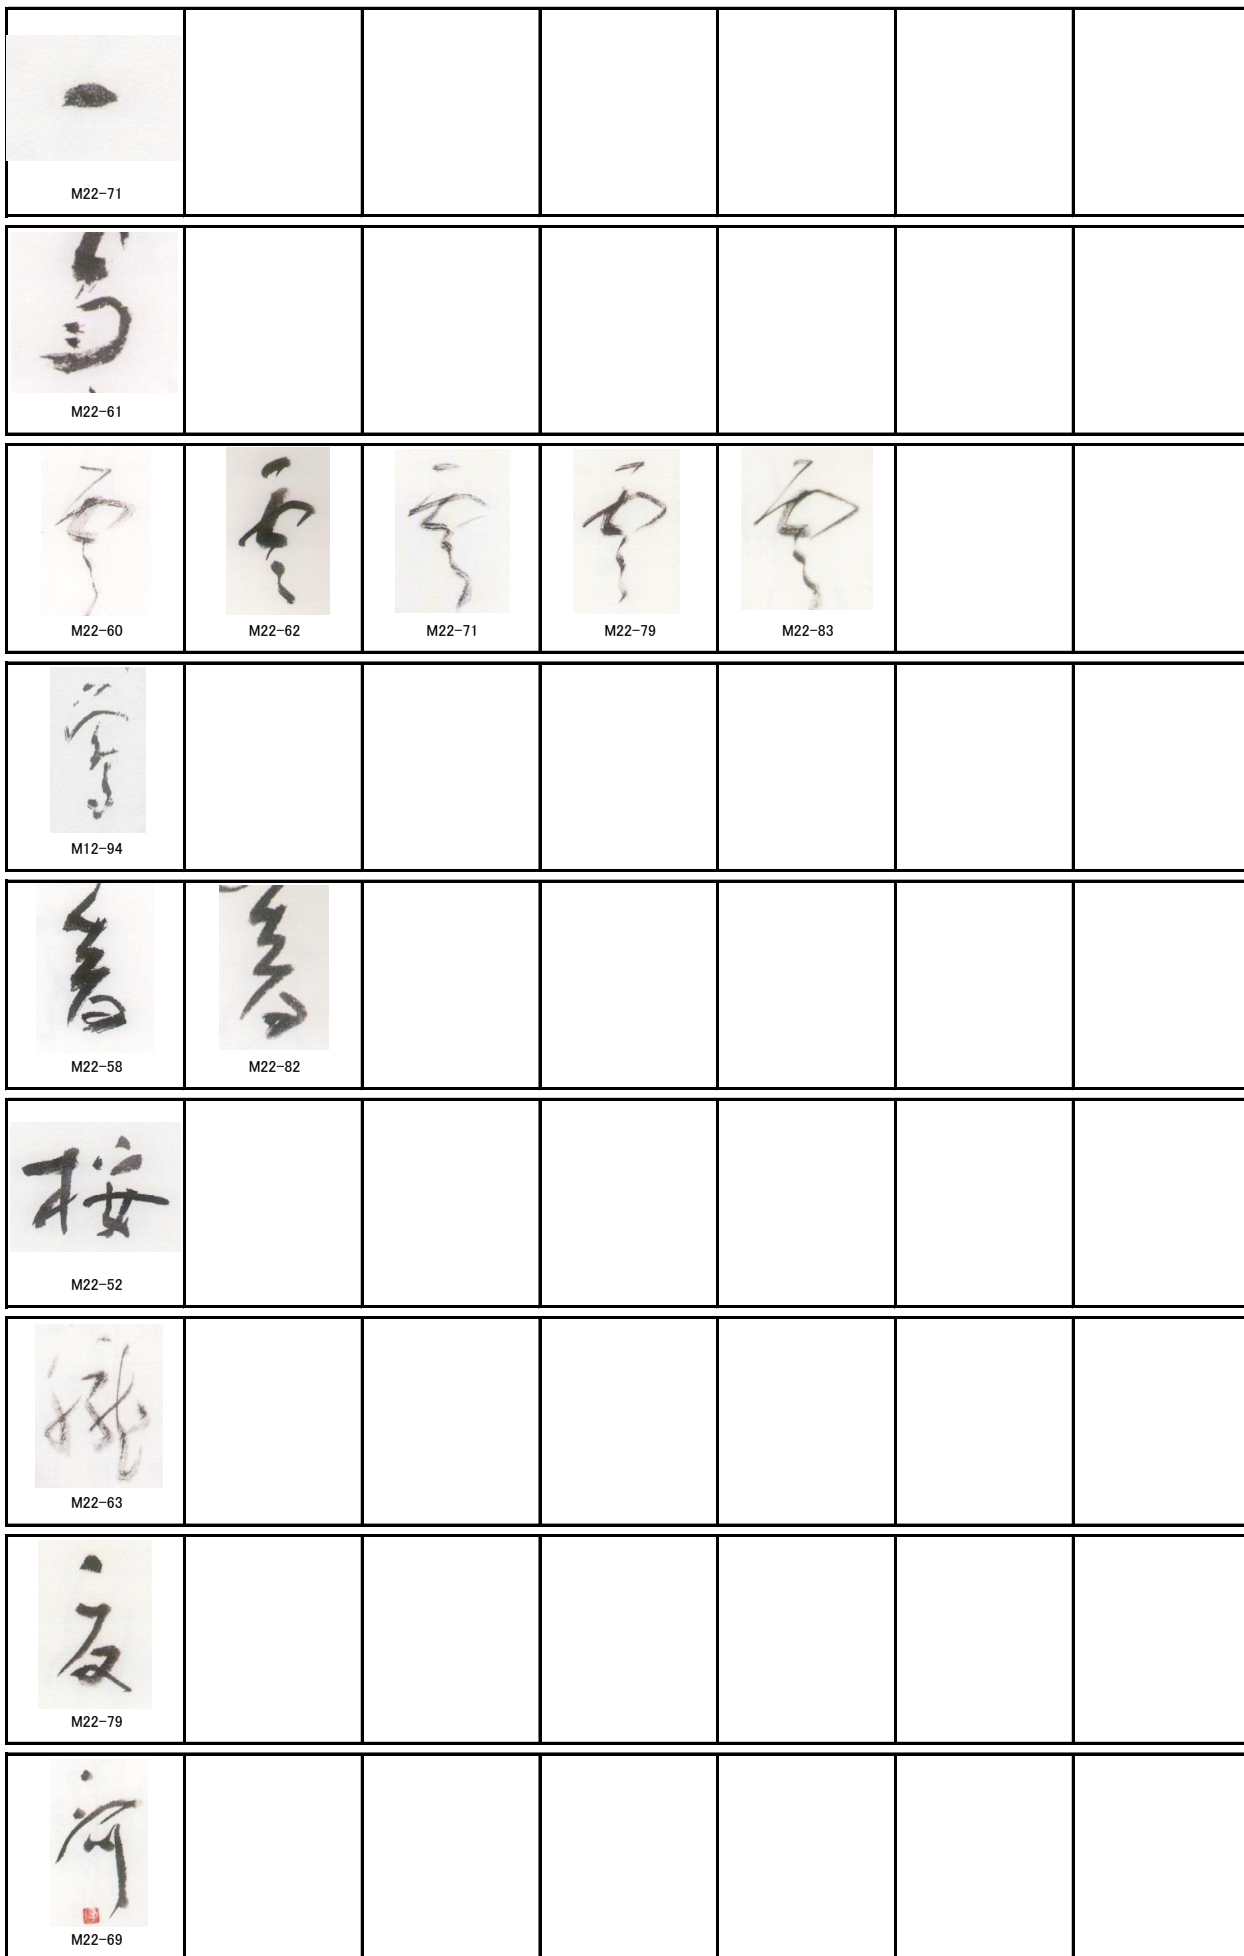 一
M22-71
M22-61
雲 雲 雲 雲 雲
M22-60 M22-62 M22-71 M22-79 M22-83
鶯
M12-94
M22-58 M22-82
桜
M22-52
朧
M22-63
夏
M22-79
荷
M22-69